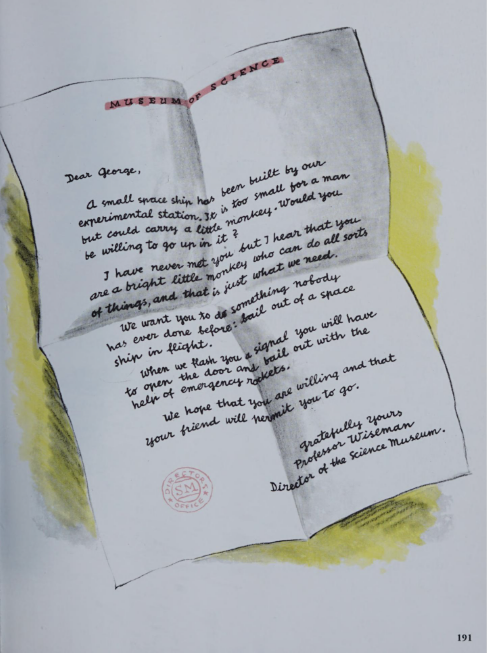 MUSEUM OF SCIENCE
Dear George,
A small space ship has been built by our
experimental station. It is too small for a man
but could carry a little monkey. Would you
be willing to go up in it?
I have never met you but I hear that you
are a bright little monkey who can do all sorts
of things, and that is just what we need.
We want you to do something nobody
has ever done before: bail out of a space
ship in flight.
When we flash you a signal you will have
to open the door and bail out with the
help of emergency rockets.
We hope that you are willing and that
your friend will permit you to go.
gratefully yours
Professor Wiseman
Director of the Science Museum.
DIRECTOR'S
SM
OFFICE
191